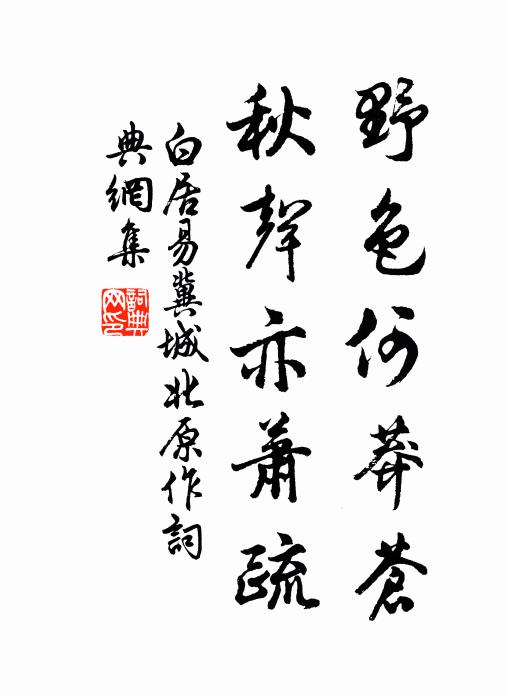 野色何莽蒼
秋聲亦蕭疏
白居易冀城北原作詞
典網集
詞典網印